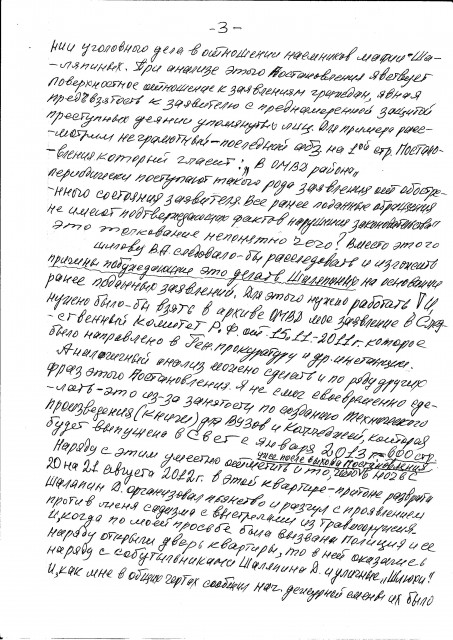 - 3 -
нии уголовного дела в отношении наемников мафии "Ша-
-ляпиных. При анализе этого Постановления явствует
поверхностное отношение к заявлениям граждан, явная
предвзятость к заявителю с преднамеренной защитой
преступных деяний упомянутых лиц. Для примера расс-
-мотрим неграмотный-последний абз на 1ой стр. Постано-
-вления который гласит: „В ОМВД района
периодически поступают такого рода заявления от обостре-
-нного состояния заявителя. Все ранее поданные обращения
не имеют подтверждающих фактов нарушения законодательства"
это толкование непонятно чего? Вместо этого
В.А. следовало-бы расследовать и изложить
причины побуждающие это делать Шаляпину на основании
ранее поданных заявлений. Для этого нужно работать и
нужно было-бы взять в архиве ОМВД мое заявление в След-
-ственный комитет Р.Ф от 15.11-2011г. которое
было направлено в Ген. прокуратуру и др. инстанции.
Аналогичный анализ можно сделать и по ряду других
фраз этого Постановления. Я не смог своевременно сде-
-лать-это из-за занятости по созданию технического
произведения (книги) для ВУЗов и Колледжей, которая
будет выпущена в Свет с Января 2013г-600 стр.
уже после выхода Постановления
Наряду с этим уместно отметить и то, что в ночь с
20 на 21 августа 2012г. в этой квартире-притоне разврата
Шаляпин Д. организовал пьянство и разгул с проявлением
против меня садизма с выстрелами из травмооружия.
И, когда по моей просьбе была вызвана Полиция и ее
наряду открыли дверь квартиры, то в ней оказались
наряду с собутыльниками Шаляпина Д. и уличные „Шлюхи"
И, как мне в общих чертах сообщил нач. дежурной смены их было